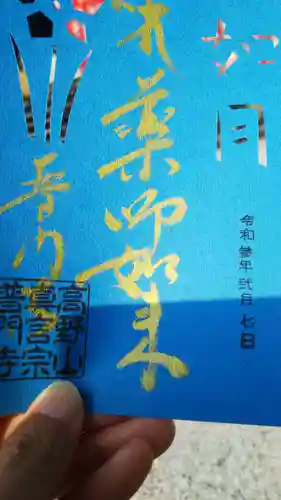 如月
令和参年 弐月 七日
薬師如来
普門
高野山
真言宗
普門寺